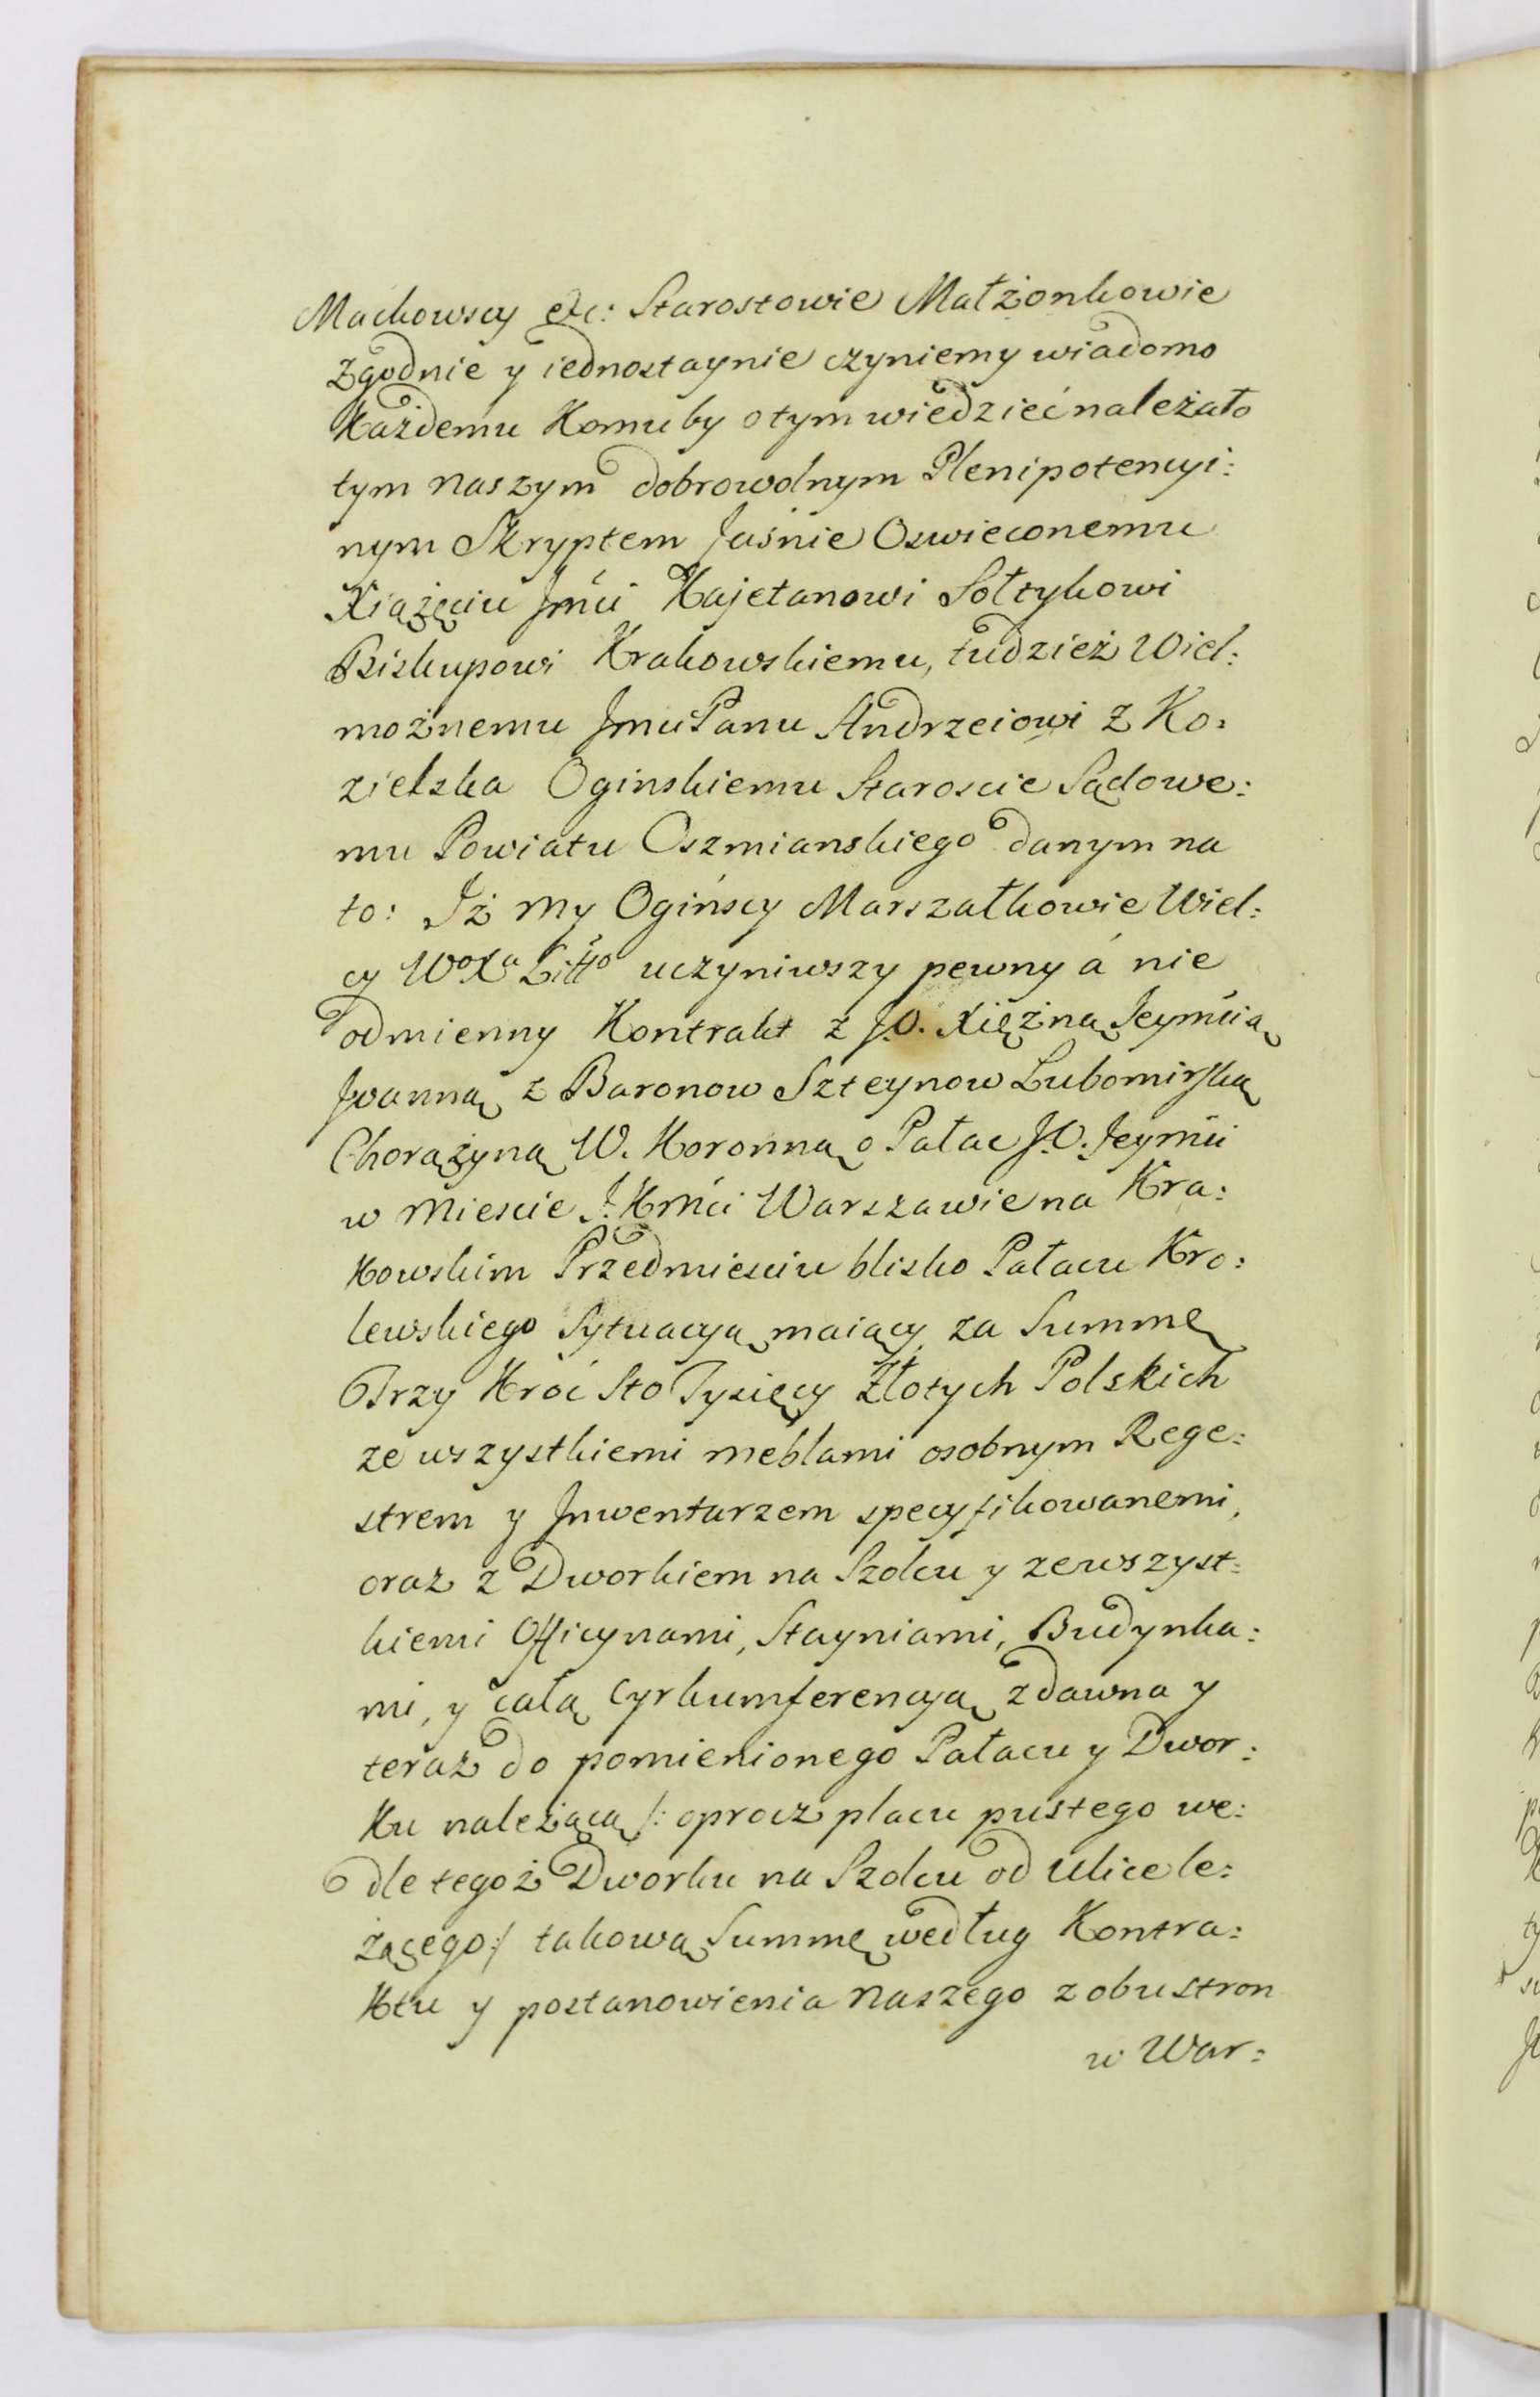 Mackowscy etc: Starostowie Małżonkowie
Zgodnie y iednostaynie czyniemy wiadomo
Każdemu Komuby o tym wiedzieć należało
tym naszym dobrowolnym Plenipotencyi:
nym Skryptem Jaśnie Oswieconemu
Xiążęciu Jmći Kajetanowi Sołtykowi
Biskupowi Krakowskiemu, tudzież Wiel:
możnemu Jmći Panu Andrzeiowi z Ko:
zielska Oginskiemu Staroscie Sądowe:
mu Powiatu Oszmianskiego danym na
to: Iż my Ogińscy Marszałkowie Wiel:
cy WoXa Litto uczyniwszy pewny á nie
odmienny Kontrakt z J.O. Xiężną Jeymścią
Joanną z Baronow Szteynow Lubomirską
Chorążyną W. Koronną o Pałac J.O. Jeymći
w Mieście J.KMći Warszawie na Kra:
kowskim Przedmiesciu blisko Pałacu Kro:
lewskiego Sytuacyą maiący za Summę
Trzy Kroć Sto Tysięcy Złotych Polskich
ze wszystkiemi meblami osobnym Rege:
strem y Inwentarzem specyfikowanemi,
oraz z Dworkiem na Szolcu y ze wszyst:
kiemi Officynami, Stayniami, Budynka:
mi, y całą Cyrkumferencyą zdawna y
teraz do pomienionego Pałacu y Dwor:
ku należącą /: oprocz placu pustego we:
dle tegoż Dworku na Szolcu od ulice le:
żącego:/ takową Summę według Kontra:
ktu y postanowienia naszego z obu stron
w War: